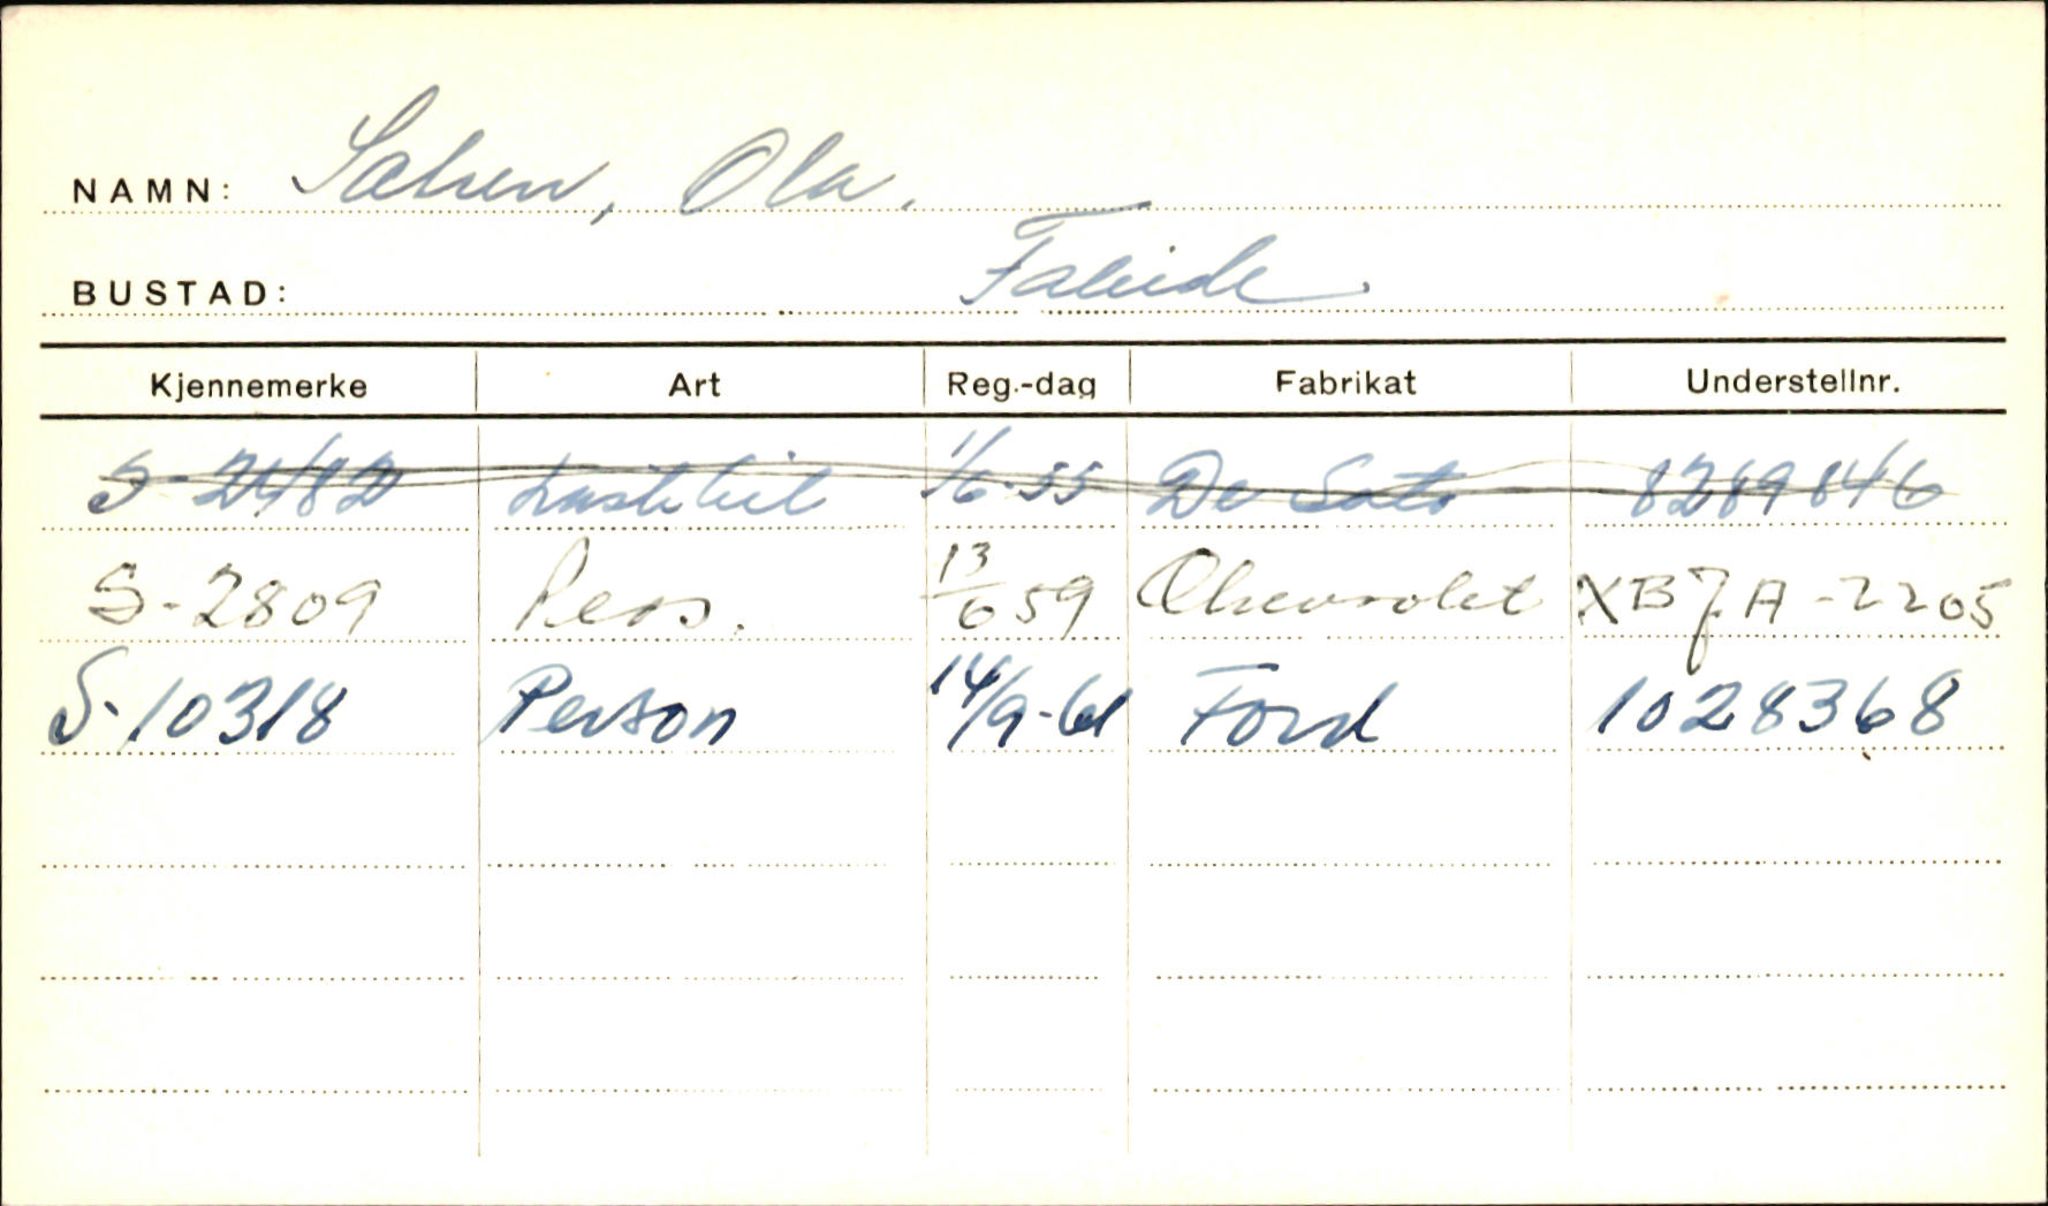 NAMN: Sølsen, Ola.
BUSTAD: Faleide.
Kjennemerke Art Reg.-dag Fabrikat Understellnr.
S-2482 Lastebil 1/6-55 De Soto 8289846
S-2809 Pers. 13/6 59 Chevrolet XB7A-2205
S-10318 Person 14/9-61 Ford 1028368